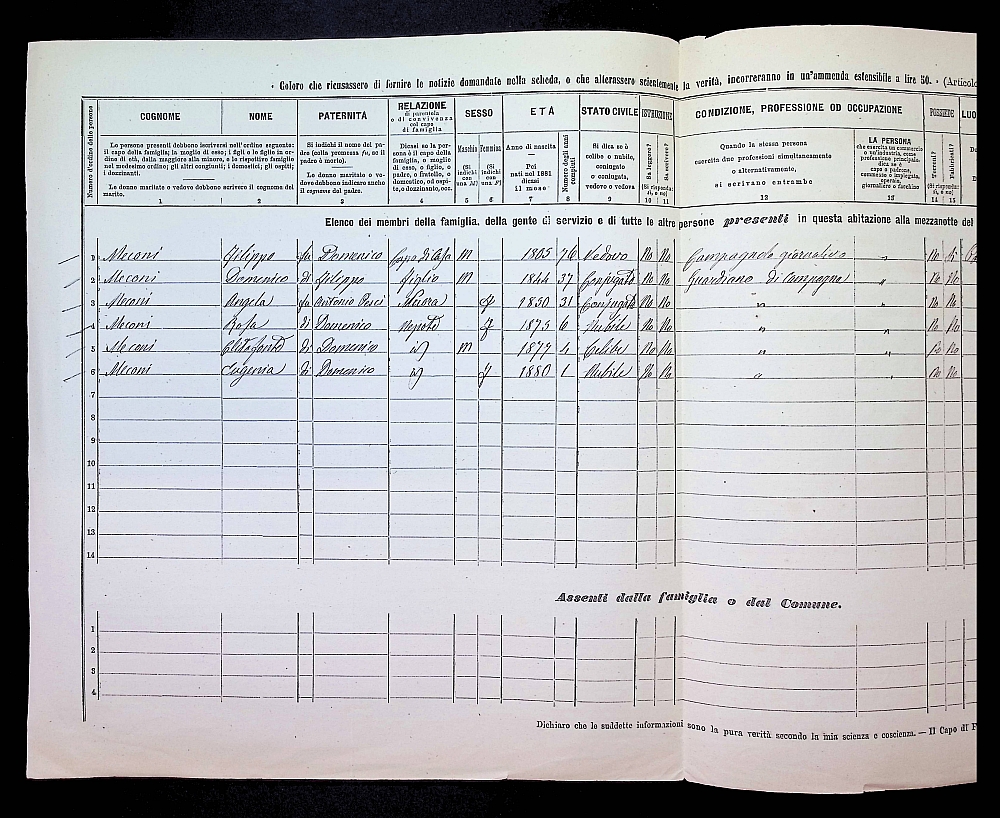 · Coloro che ricusassero di fornire le notizie domandate nella scheda, o che alterassero scientemente la verità, incorreranno in un'ammenda estensibile a lire 50. · (Articolo
Numero d'ordine delle persone
COGNOME NOME PATERNITÀ RELAZIONE di parentela o di convivenza col capo di famiglia SESSO ETÀ STATO CIVILE ISTRUZIONE CONDIZIONE, PROFESSIONE OD OCCUPAZIONE POSSIEDE LUO
Le persone presenti debbono iscriversi nell'ordine seguente: il capo della famiglia; la moglie di esso; i figli e le figlie in ordine di età, dalla maggiore alla minore, e le rispettive famiglie nel medesimo ordine; gli altri congiunti; i domestici; gli ospiti; i dozzinanti.
Le donne maritate o vedove debbono scrivere il cognome del marito.
Si indichi il nome del padre (colla premessa fu, se il padre è morto).
Le donne maritate o vedove debbono indicare anche il cognome del padre.
Dicasi se la persona è il capo della famiglia, o moglie di esso, o figlio, o padre, o fratello, o domestico, od ospite, o dozzinante, ecc.
Maschio (Si indichi con una M)
Femmina (Si indichi con una F)
Anno di nascita
Pei nati nel 1881 dicasi il mese
Numero degli anni compiuti
Si dica se è celibe o nubile, coniugato o coniugata, vedovo o vedova
Sa leggere? Sa scrivere?
(Si risponda: sì, o no)
Quando la stessa persona esercita due professioni simultaneamente o alternativamente, si scrivano entrambe
LA PERSONA che esercita un commercio o un'industria, come professione principale, dica se è capo o padrone, commesso o impiegato, operaio, giornaliero o facchino
Terreni? Fabbricati?
(Si risponda: sì, o no)
1 2 3 4 5 6 7 8 9 10 11 12 13 14 15
Elenco dei membri della famiglia, della gente di servizio e di tutte le altre persone presenti in questa abitazione alla mezzanotte del
1 Meconi Filippo fu Domenico Capo di Casa M 1805 76 Vedovo No No Campagnolo giornaliero " No Si
2 Meconi Domenico di Filippo Figlio M 1844 37 Conjugato No No Guardiano di Campagna " No No
3 Meconi Angela fu Antonio Pesci Nuora F 1850 31 Conjugata No No " " No No
4 Meconi Rosa di Domenico Nepote F 1875 6 Nubile No No " " No No
5 Meconi di Domenico id M 1877 4 Celibe No No " " No No
6 Meconi Eugenia di Domenico id F 1880 1 Nubile No No " " No No
7
8
9
10
11
12
13
14
Assenti dalla famiglia o dal Comune.
1
2
3
4
Dichiaro che le suddette informazioni sono la pura verità secondo la mia scienza e coscienza. — Il Capo di F